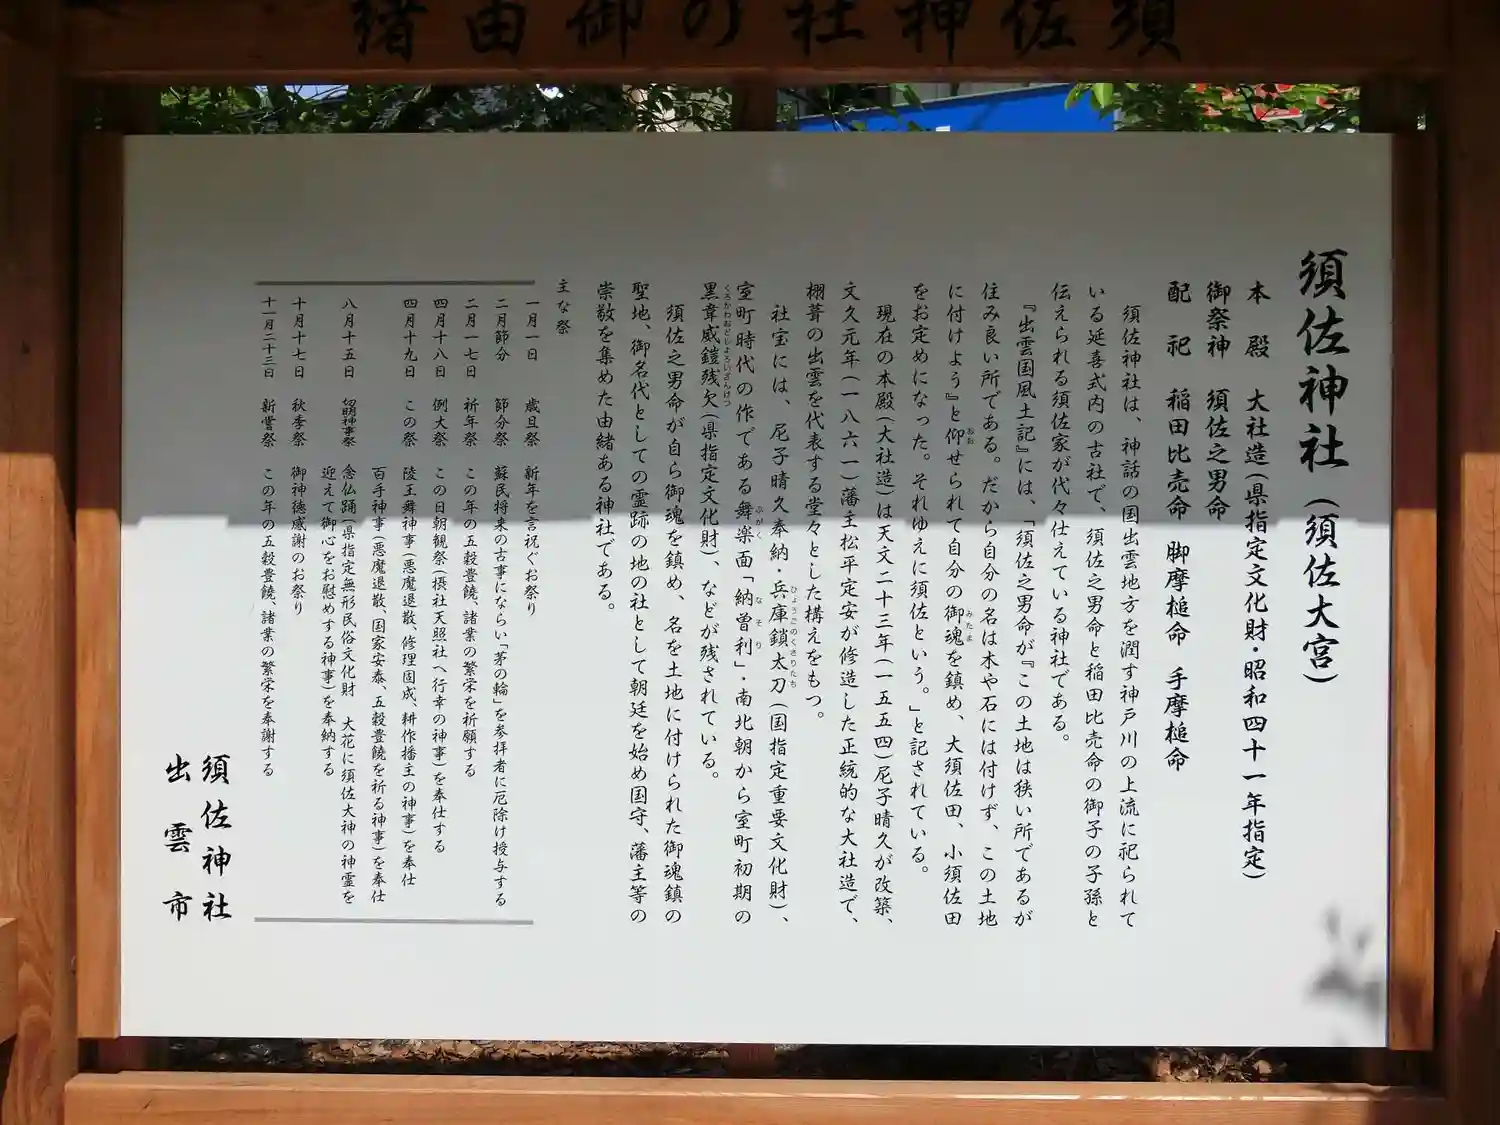 須佐神社の御由緒
須佐神社（須佐大宮）
本殿　大社造（県指定文化財・昭和四十一年指定）
御祭神　須佐之男命
配祀　稲田比売命　脚摩槌命　手摩槌命
須佐神社は、神話の国出雲地方を潤す神戸川の上流に祀られて
いる延喜式内の古社で、須佐之男命と稲田比売命の御子の子孫と
伝えられる須佐家が代々仕えている神社である。
『出雲国風土記』には、「須佐之男命が『この土地は狭い所であるが
住み良い所である。だから自分の名は木や石には付けず、この土地
に付けよう』と仰せられて自分の御魂を鎮め、大須佐田、小須佐田
をお定めになった。それゆえに須佐という。」と記されている。
現在の本殿（大社造）は天文二十三年（一五五四）尼子晴久が改築、
文久元年（一八六一）藩主松平定安が修造した正統的な大社造で、
栩葺の出雲を代表する堂々とした構えをもつ。
社宝には、尼子晴久奉納・兵庫鎖太刀（国指定重要文化財）、
室町時代の作である舞楽面「納曽利」・南北朝から室町初期の
黒韋威鎧残欠（県指定文化財）、などが残されている。
須佐之男命が自ら御魂を鎮め、名を土地に付けられた御魂鎮の
聖地、御名代としての霊跡の地の社として朝廷を始め国守、藩主等の
崇敬を集めた由緒ある神社である。
主な祭
一月一日　歳旦祭　新年を言祝ぐお祭り
二月節分　節分祭　蘇民将来の古事にならい「茅の輪」を参拝者に厄除け授与する
二月一七日　祈年祭　この年の五穀豊饒、諸業の繁栄を祈願する
四月十八日　例大祭　この日朝覲祭（摂社天照社へ行幸の神事）を奉仕する
四月十九日　この祭　陵王舞神事（悪魔退散、修理固成、耕作播主の神事）を奉仕
百手神事（悪魔退散、国家安泰、五穀豊饒を祈る神事）を奉仕
八月十五日　切明神事祭　念仏踊（県指定無形民俗文化財　大花に須佐大神の神霊を
迎えて御心をお慰めする神事）を奉納する
十月十七日　秋季祭　御神徳感謝のお祭り
十一月二十三日　新嘗祭　この年の五穀豊饒、諸業の繁栄を奉謝する
須佐神社
出雲市